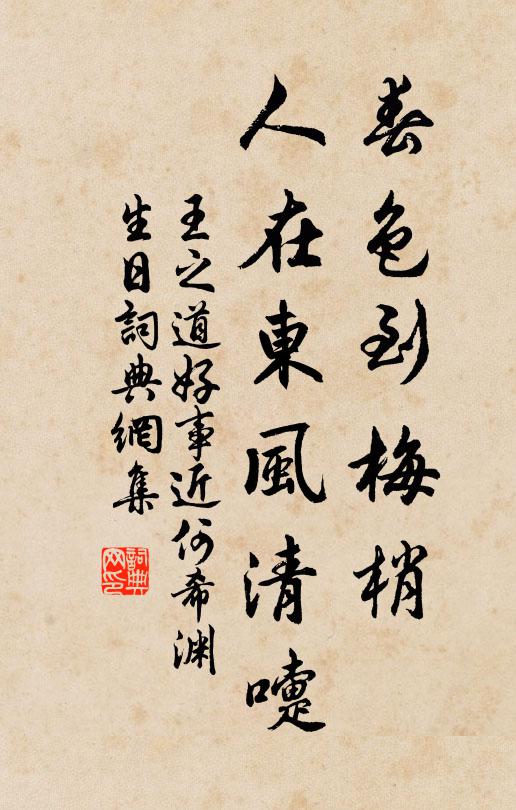 春色到梅梢
人在東風清嚏
王之道好事近何希渊
生日詞典網集
詞典
网印